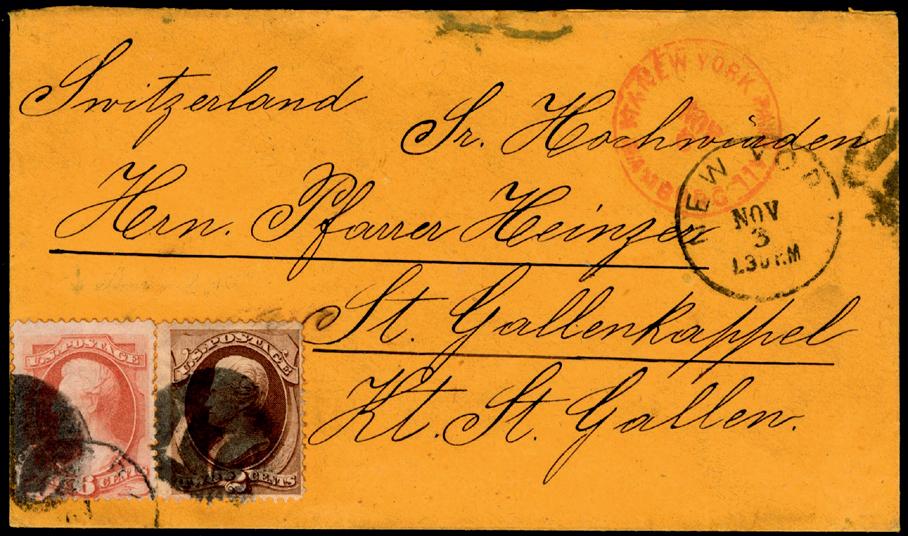 Switzerland
Sr. Hochwürden
Hrn. Pfarrer Heinzer
St. Gallenkappel
Kt. St. Gallen.
NEW YORK
NOV
NEW YOR
NOV
3
1.30 P.M
U.S. POSTAGE
6 CENTS
U.S. POSTAGE
2 CENTS